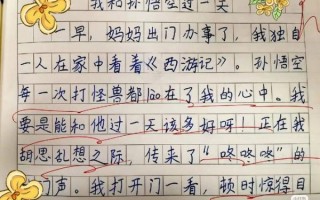 我和孙悟空过一天
一早，妈妈出门办事了，我独自
一人在家中看着《西游记》。孙悟空
每一次打怪兽都印在了我的心中。我
要是能和他过一天该多好呀！正在我
胡思乱想之际，传来了“咚咚咚”的
门声。我打开门一看，顿时惊得目